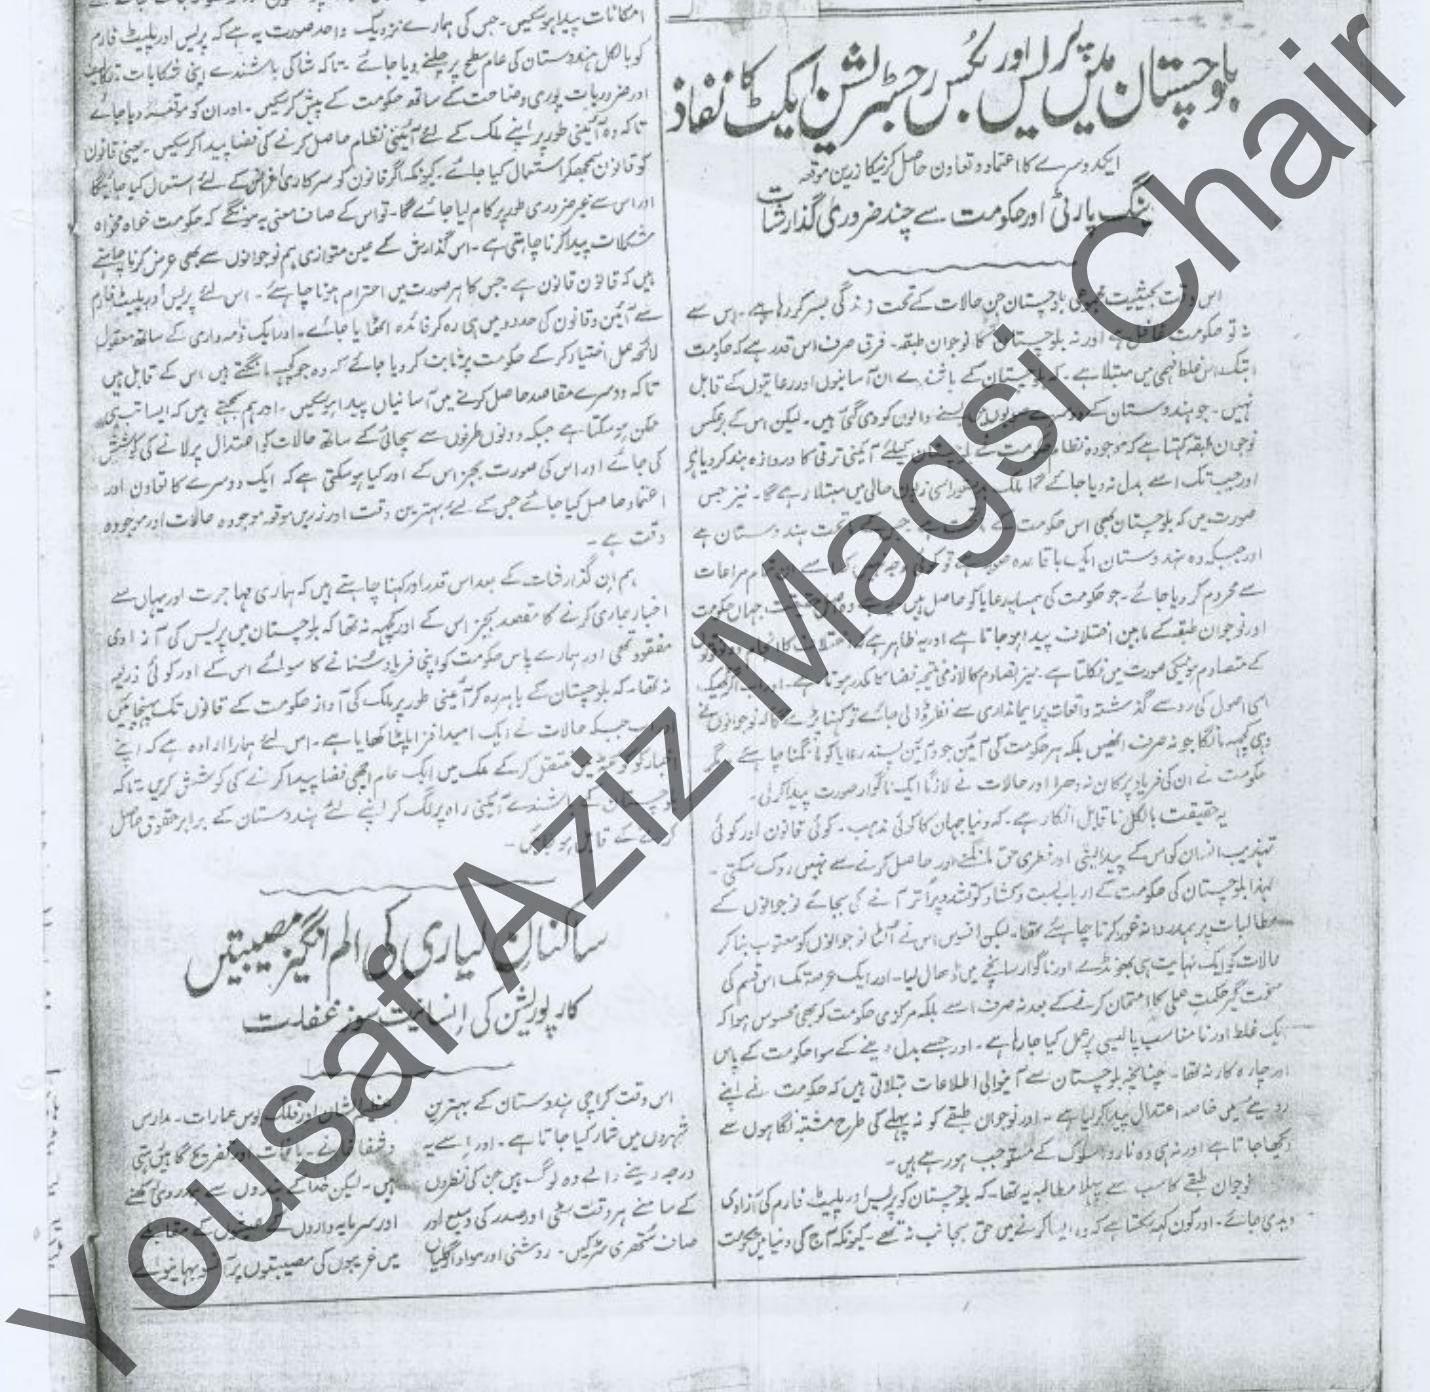 بلوچستان میں پریس اور بکس رجسٹریشن ایکٹ کا نفاذ
ایکدوسرے کا اعتماد و تعاون حاصل کرنیکا زرین موقعہ
ینگ پارٹی اور حکومت سے چند ضروری گذارشات
اس وقت بحیثیت مجموعی بلوچستان جن حالات کے تحت زندگی بسر کر رہا ہے۔ اس سے
نہ تو حکومت غافل ہے اور نہ بلوچستان کا نوجوان طبقہ۔ فرق صرف اس قدر ہے کہ حکومت
ابتک اس غلط فہمی میں مبتلا ہے۔ کہ بلوچستان کے باشندے ان آسانیوں اور رعایتوں کے قابل
نہیں۔ جو ہندوستان کے دوسرے صوبوں میں بسنے والوں کو دی گئی ہیں۔ لیکن اس کے برعکس
نوجوان طبقہ کہتا ہے کہ موجودہ نظام حکومت نے بلوچستان کیلئے آئینی ترقی کا دروازہ بند کر دیا ہے
اور جب تک اسے بدل نہ دیا جائے گا ملک بدستور اسی زبوں حالی میں مبتلا رہے گا۔ نیز جس
صورت میں کہ بلوچستان بھی اس حکومت کے ماتحت ہے جس کے ماتحت ہندوستان ہے
اور جبکہ وہ ہندوستان ایک باقاعدہ صوبہ ہے تو کوئی وجہ نہیں کہ اسے ان تمام مراعات
سے محروم کر دیا جائے۔ جو حکومت کی ہمسایہ رعایا کو حاصل ہیں جہاں حکومت
اور نوجوان طبقہ کے مابین اختلاف پیدا ہو جاتا ہے اور یہ ظاہر ہے کہ اختلاف کا انجام دونوں
کے متصادم ہونیکی صورت میں نکلتا ہے۔ نیز تصادم کا لازمی نتیجہ فضا کا مکدر ہونا ہے۔ اور اب اگر
اسی اصول کی رو سے گذشتہ واقعات پر ایمانداری سے نظر ڈالی جائے تو کہنا پڑے گا کہ نوجوانوں نے
وہی کچھ مانگا جو نہ صرف انھیں بلکہ ہر حکومت کی آئین جو و آئین پسند رعایا کو مانگنا چاہئے۔ مگر
حکومت نے ان کی فریاد پر کان نہ دھرا اور حالات نے لازماً ایک ناگوار صورت پیدا کر لی۔
یہ حقیقت بالکل ناقابل انکار ہے۔ کہ دنیا جہان کا کوئی مذہب۔ کوئی قانون اور کوئی
تہذیب انسان کو اس کے پیدائشی اور فطری حق مانگنے اور حاصل کرنے سے نہیں روک سکتی۔
لہٰذا بلوچستان کی حکومت کے ارباب بست و کشاد کو تشدد پر اتر آنے کی بجائے نوجوانوں کے
مطالبات پر ہمدردانہ غور کرنا چاہئے تھا۔ لیکن افسوس اس نے اُلٹا نوجوانوں کو معتوب بنا کر
حالات کو ایک نہایت ہی بھونڈے اور ناگوار سانچے میں ڈھال لیا۔ اور ایک عرصہ تک اس قسم کی
سخت گیر حکمت عملی کا امتحان کرنے کے بعد نہ صرف اسے بلکہ مرکزی حکومت کو بھی محسوس ہوا کہ
ایک غلط اور نامناسب پالیسی پر عمل کیا جا رہا ہے۔ اور جسے بدل دینے کے سوا حکومت کے پاس
اور چارہ کار نہ تھا۔ چنانچہ بلوچستان سے آنیوالی اطلاعات بتلاتی ہیں کہ حکومت نے اپنے
رویے میں خاصہ اعتدال پیدا کر لیا ہے۔ اور نوجوان طبقے کو نہ پہلے کی طرح مشتبہ نگاہوں سے
دیکھا جاتا ہے اور نہ ہی وہ ناروا سلوک کے مستوجب ہو رہے ہیں۔
نوجوان طبقے کا سب سے پہلا مطالبہ یہ تھا۔ کہ بلوچستان کو پریس اور پلیٹ فارم کی آزادی
دیدی جائے۔ اور کون کہہ سکتا ہے کہ وہ ایسا کرنے میں حق بجانب نہ تھے۔ کیونکہ آج کی دنیا میں حکومت
امکانات پیدا ہو سکیں۔ جس کی ہمارے نزدیک واحد صورت یہ ہے کہ پریس اور پلیٹ فارم
کو بالکل ہندوستان کی عام سطح پر چلنے دیا جائے۔ تاکہ شاکی باشندے اپنی شکایات تکالیف
اور ضروریات پوری وضاحت کے ساتھ حکومت کے پیش کر سکیں۔ اور ان کو موقعہ دیا جائے
تاکہ وہ آئینی طور پر اپنے ملک کے لئے آئینی نظام حاصل کرنے کی فضا پیدا کر سکیں۔ یعنی قانون
کو قانون سمجھکر استعمال کیا جائے۔ کیونکہ اگر قانون کو سرکاری اغراض کے لئے استعمال کیا جائیگا
اور اس سے غیر ضروری طور پر کام لیا جائے گا۔ تو اس کے صاف معنی یہ ہونگے کہ حکومت خواہ مخواہ
مشکلات پیدا کرنا چاہتی ہے۔ اس گذارش کے عین متوازی ہم نوجوانوں سے بھی عرض کرنا چاہتے
ہیں کہ قانون قانون ہے جس کا ہر صورت میں احترام ہونا چاہئے۔ اس لئے پریس اور پلیٹ فارم
سے آئین و قانون کی حدود میں ہی رہ کر فائدہ اٹھایا جائے۔ اور ایک ذمہ داری کے ساتھ معقول
لائحہ عمل اختیار کر کے حکومت پر ثابت کر دیا جائے کہ وہ جو کچھ مانگتے ہیں اس کے قابل ہیں
تاکہ دوسرے مقاصد حاصل کرنے میں آسانیاں پیدا ہو سکیں۔ اور ہم سمجھتے ہیں کہ ایسا تب ہی
ممکن ہو سکتا ہے جبکہ دونوں طرفوں سے سچائی کے ساتھ حالات کو اعتدال پر لانے کی کوشش
کی جائے اور اس کی صورت بجز اس کے اور کیا ہو سکتی ہے کہ ایک دوسرے کا تعاون اور
اعتماد حاصل کیا جائے جس کے لئے بہترین وقت اور زریں موقعہ موجودہ حالات اور موجودہ
وقت ہے۔
ہم ان گذارشات کے بعد اس قدر اور کہنا چاہتے ہیں کہ ہماری مہاجرت اور یہاں سے
اخبار جاری کرنے کا مقصد بجز اس کے اور کچھ نہ تھا کہ بلوچستان میں پریس کی آزادی
مفقود تھی اور ہمارے پاس حکومت کو اپنی فریاد سُنانے کا سوائے اس کے اور کوئی ذریعہ
نہ تھا۔ کہ بلوچستان کے باہر رہ کر آئینی طور پر ملک کی آواز حکومت کے کانوں تک پہنچائیں
اور اب جبکہ حالات نے ایک امید افزا پلٹا کھایا ہے۔ اس لئے ہمارا ارادہ ہے کہ اپنے
اخبار کو کوئٹہ میں منتقل کر کے ملک میں ایک عام اچھی فضا پیدا کرنے کی کوشش کریں۔ تاکہ
بلوچستان کے باشندے آئینی راہ پر لگ کر اپنے لئے ہندوستان کے برابر حقوق حاصل
کرنے کے قابل ہو سکیں۔
ساکنانِ لیاری کی الم انگیز مصیبتیں
کارپوریشن کی انسانیت سوز غفلت
اس وقت کراچی ہندوستان کے بہترین
شہروں میں شمار کیا جاتا ہے۔ اور اسے یہ
درجہ دینے والے وہ لوگ ہیں جن کی نظروں
کے سامنے ہر وقت سٹی اور صدر کی وسیع اور
صاف ستھری سڑکیں۔ روشنی اور ہوادار گلیاں
عظیم الشان اور فلک بوس عمارات۔ مدارس
و شفا خانے۔ باغات اور تفریح گاہیں ہی
ہیں۔ لیکن خدا کے بندوں سے ہمدردی رکھنے
اور سرمایہ داروں کے مقابلے
میں غریبوں کی مصیبتوں پر آنسو بہانیوالے
Yousaf Aziz Magsi Chair